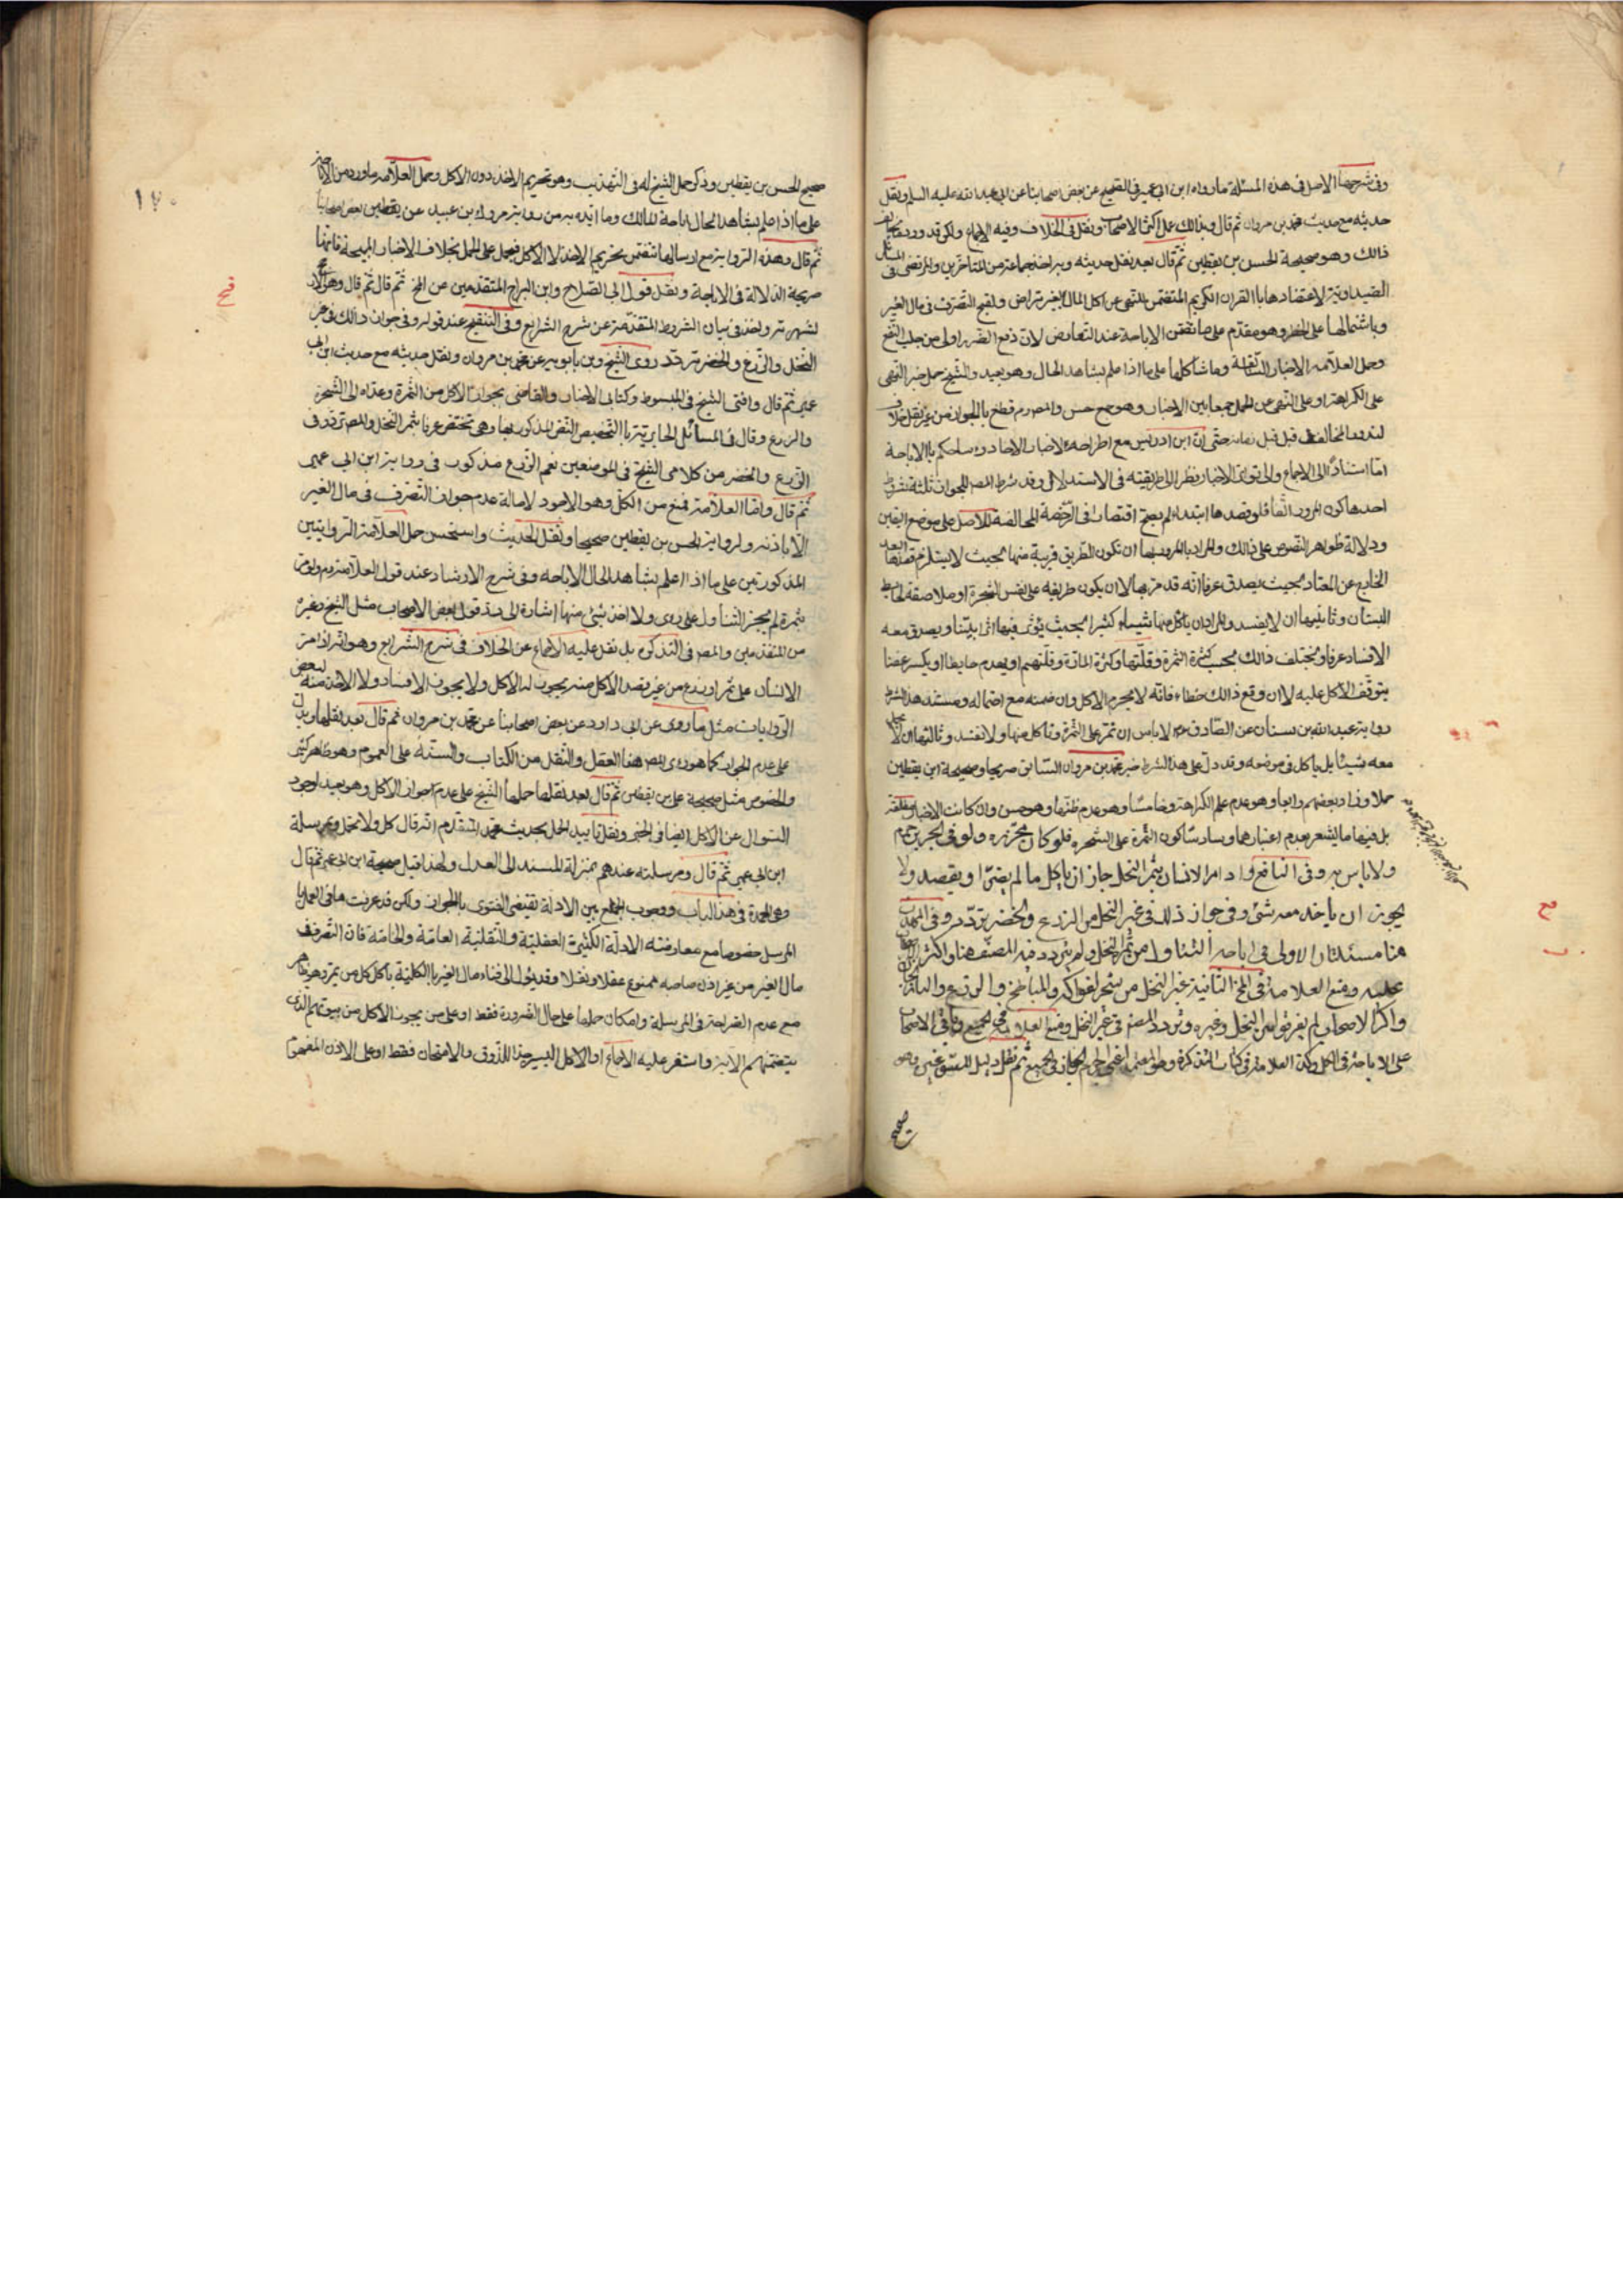 وفى شرحها الاصل فى هذه المسئلة ما رواه ابن ابى عمير فى الصحيح عن بعض اصحابنا عن ابى عبد الله عليه السلم ونقل
حديثه مع حديث محمد بن مروان ثم قال وبذلك عمل اكثر الاصحاب ونقل فى الخلاف وفيه الاجماع ولكن قد ورد
ذالك وهو صحيحة الحسن بن يقطين ثم قال بعد نقل حديثه وبه اخذ جماعة من المتاخرين والمرتضى فى
لاعتضادها بالقران الكريم المتضمن للنهى عن اكل المال بغير تراض ولقبح التصرف فى مال الغير
وباشتمالها على الحظر وهو مقدم على ما تضمن الاباحة عند التعارض لان دفع الضرر اولى من جلب النفع
وحمل العلامه الاخبار السالفة وما شاكلها على ما اذا علم بشاهد الحال وهو بعيد والشيخ حمل خبر النهى
على الكراهة او على النهى عن الحمل جمعا بين الاخبار وهو جمع حسن والمص ره قطع بالجواز من غير نقل خلاف
لندور المخالف قبل زمانه حتى ان ابن ادريس مع اطراحه الاخبار الاحاد حكم بالاباحة
اما استنادا الى الاجماع والى تواتر الاخبار نظرا الى طريقته فى الاستدلال وقد شرط المص للجواز ثلثة شروط
احدها كون المرور اتفاقا فلو قصدها ابتداء لم يصح اقتصارا فى الرخصة المخالفة للاصل على موضع اليقين
ودلالة ظواهر النصوص على ذالك والمراد بالمرور بها ان تكون الطريق قريبة منها بحيث لا يستلزم قصدها
الخارج عن المعتاد بحيث يصدق عرفا انه قد مر بها لا ان يكون طريقه على نفس الشجرة او ملاصقة لحايط
البستان وثانيها ان لا يفسد والمراد ان ياكل منها شيئا كثيرا بحيث يؤثر فيها اثرا بينا ويصدق معه
الافساد عرفا ويختلف ذالك بحسب كثرة الثمرة وقلتها وكثرة المارة وقلتهم او يهدم حايطا او يكسر غصنا
يتوقف الاكل عليه لا ان وقع ذالك خطاء فانه لا يحرم الاكل وان ضمنه مع احتماله ومستند هذا الشرط
رواية عبد الله بن سنان عن الصادق لا باس ان تمر على الثمرة وتاكل منها ولا تفسد وثالثها ان لا يحمل
معه شيئا بل ياكل فى موضعه وقد دل على هذا الشرط خبر محمد بن مروان السابق صريحا وصحيحة ابن يقطين
حملا وزاد بعضهم رابعا وهو عدم علم الكراهة وخامسا وهو عدم ظنها وهو حسن وان كانت الاخبار مطلقة
بل فيها ما يشعر بعدم اعتبارهما وسادسا كون الثمرة على الشجره فلو كان محرزة ولو فى الجرين حرم
ولا باس به وفى النافع واذا مر الانسان بثمر النخل جاز ان ياكل ما لم يضر او يقصد ولا
يجوز ان ياخذ معه شئ وفى جواز ذلك فى غير النخل من الزرع والخضر تردد وفى المهذب
هنا مسئلتان الاولى فى اباحه التناول من ثمر النخل ولم يتردد فيه المصنف هنا واكثر
عليه ومنع العلامة فى المخ الثانية غير النخل من شجر الفواكه والمباطخ والزرع
واكثر الاصحاب لم يفرقوا بين النخل وغيره وتردد المصنف فى غير النخل ومنع العلامة فى الجميع وباقى الاصحاب
على الاباحة فى الكل وكذا العلامة فى كتاب التذكرة وهو المعتمد اعنى الجواز فى الجميع ثم نقل دليل المسوغين وهو
صحيح
١٧٠
صحيح الحسن بن يقطين وذكر حمل الشيخ له فى التهذيب وهو تحريم الاخذ دون الاكل وحمل العلامه ما ورد من الاباحة
على ما اذا علم بشاهد الحال اباحة المالك وما ايده به من رواية مروك بن عبيد عن يقطين بعض اصحابنا
ثم قال وهذه الرواية مع ارسالها تتضمن تحريم الاخذ لا الاكل فيحمل على الحمل بخلاف الاخبار المبيحة فانها
صريحة الدلالة فى الاباحة ونقل قول ابى الصلاح وابن البراج المتقدمين عن المخ ثم قال ثم قال وهو
لشهرته واخذ فى بيان الشروط المتقدمة عن شرح الشرايع وفى التنقيح عند قوله وفى جواز ذالك فى غير
النخل والزرع والخضر تردد روى الشيخ وبن بابويه عن محمد بن مروان ونقل حديثه مع حديث ابن ابى
عمير ثم قال وافتى الشيخ فى المبسوط وكتابى الاخبار والقاضى بجواز الاكل من الثمرة وعداه الى الشجر
والزرع وقال فى المسائل الحايرية بالتخصيص للنص المذكور بها وهى تختص عرفا بثمر النخل والمص تردد فى
الزرع والخضر من كلامى الشيخ فى الموضعين نعم الزرع مذكور فى رواية ابن ابى عمير
ثم قال واما العلامة فمنع من الكل وهو الاجود لاصالة عدم جواز التصرف فى مال الغير
الا باذنه ولرواية الحسن بن يقطين صحيحا ونقل الحديث واستحسن حمل العلامة الروايتين
المذكورتين على ما اذا علم بشاهد الحال الاباحه وفى شرح الارشاد عند قول العلامة ره ولو مر
بثمرة لم يجز التناول على راى ولا اخذ شئ منها اشارة الى رد قول بعض الاصحاب مثل الشيخ وغيره
من المتقدمين والمص فى التذكره بل نقل عليه الاجماع عن الخلاف فى شرح الشرايع وهو انه اذا مر
الانسان على ثمر او زرع من غير قصد الاكل منه يجوز له الاكل ولا يجوز الافساد ولا الاخذ منه لبعض
الروايات مثل ما روى عن ابى داود عن بعض اصحابنا عن محمد بن مروان ثم قال بعد نقلها ويدل
على عدم الجواز كما هو راى المص هنا العقل والنقل من الكتاب والسنه على العموم وهو ظاهر كثير
والخصوص مثل صحيحة على بن يقطين ثم قال بعد نقلها حملها الشيخ على عدم جواز الاكل وهو بعيد لوجود
السوال عن الاكل ايضا فى الخبر ونقل تاييد الحمل بحديث محمد المتقدم انه قال كل ولا تحمل وبمرسلة
ابن ابى عمير ثم قال ومرسلته عندهم بمنزلة المسند الى العدل ولهذا قيل صحيحة ابن ابى عمير ثم قال
وهى العمدة فى هذا الباب ووجوب الجمع بين الادلة يقتضى الفتوى بالجواز ولكن قد عرفت ما فى العمل
المرسل خصوصا مع معارضته الادلة الكثيرة العقلية والنقلية العامة والخاصة فان التصرف
مال الغير من غير اذن صاحبه ممنوع عقلا ونقلا وقد يؤل الى فناء مال الغير بالكلية باكل كل من يمر
مع عدم الصراحة فى المرسلة وامكان حملها على حال الضرورة فقط او على من يجوز الاكل من بيوتهم الذى
يتضمنهم الاية واستقر عليه الاجماع او الاكل اليسير جدا للذوق والامتحان فقط او على الاذن المفهوم